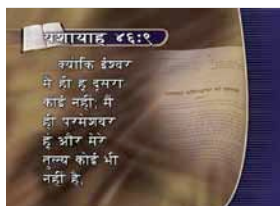 यशायाह ४६:९
क्योंकि ईश्वर
मैं ही हूं दूसरा
कोई नहीं; मैं
ही परमेश्वर
हूं और मेरे
तुल्य कोई भी
नहीं है.